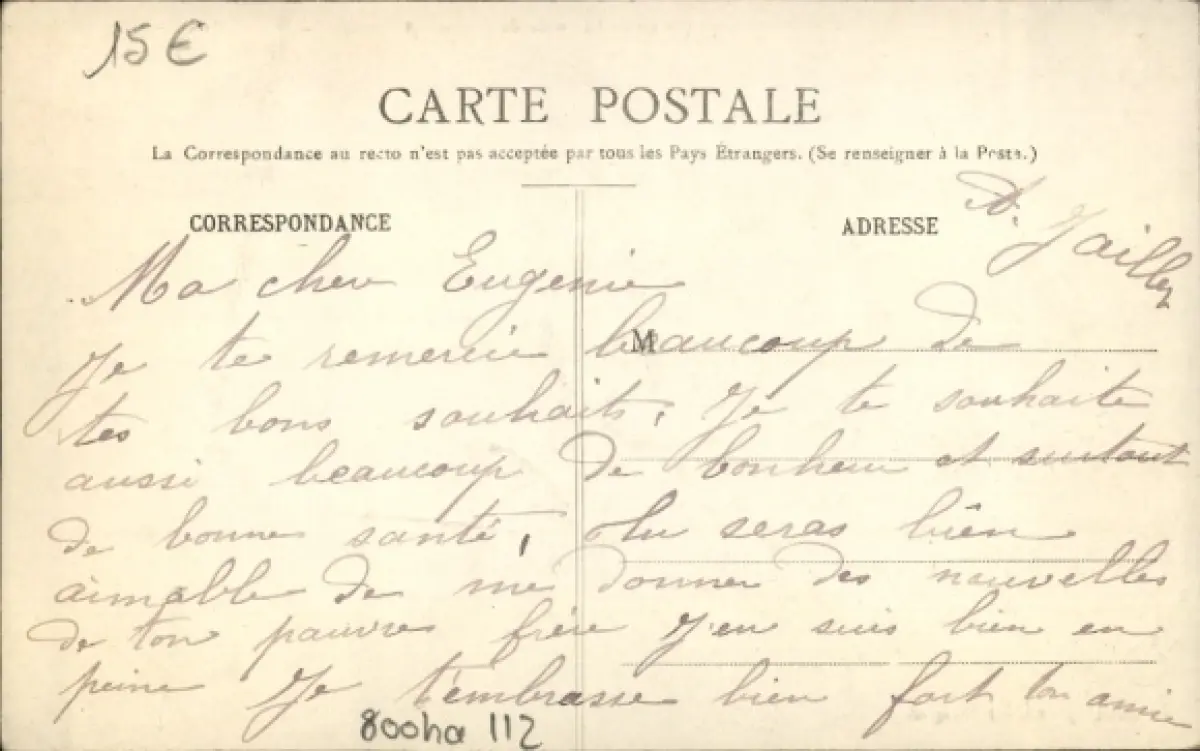 15 €
CARTE POSTALE
La Correspondance au recto n'est pas acceptée par tous les Pays Étrangers. (Se renseigner à la Poste.)
CORRESPONDANCE
ADRESSE
Jailley
Ma cher Eugenie
Je te remercie beaucoup de
M
tes bons souhaits, Je te souhaite
aussi beaucoup de bonheur et surtout
de bonne santé, tu seras bien
aimable de me donner des nouvelles
de ton pauvre frère J'en suis bien en
peine Je t'embrasse bien fort ton amie
800ha 112